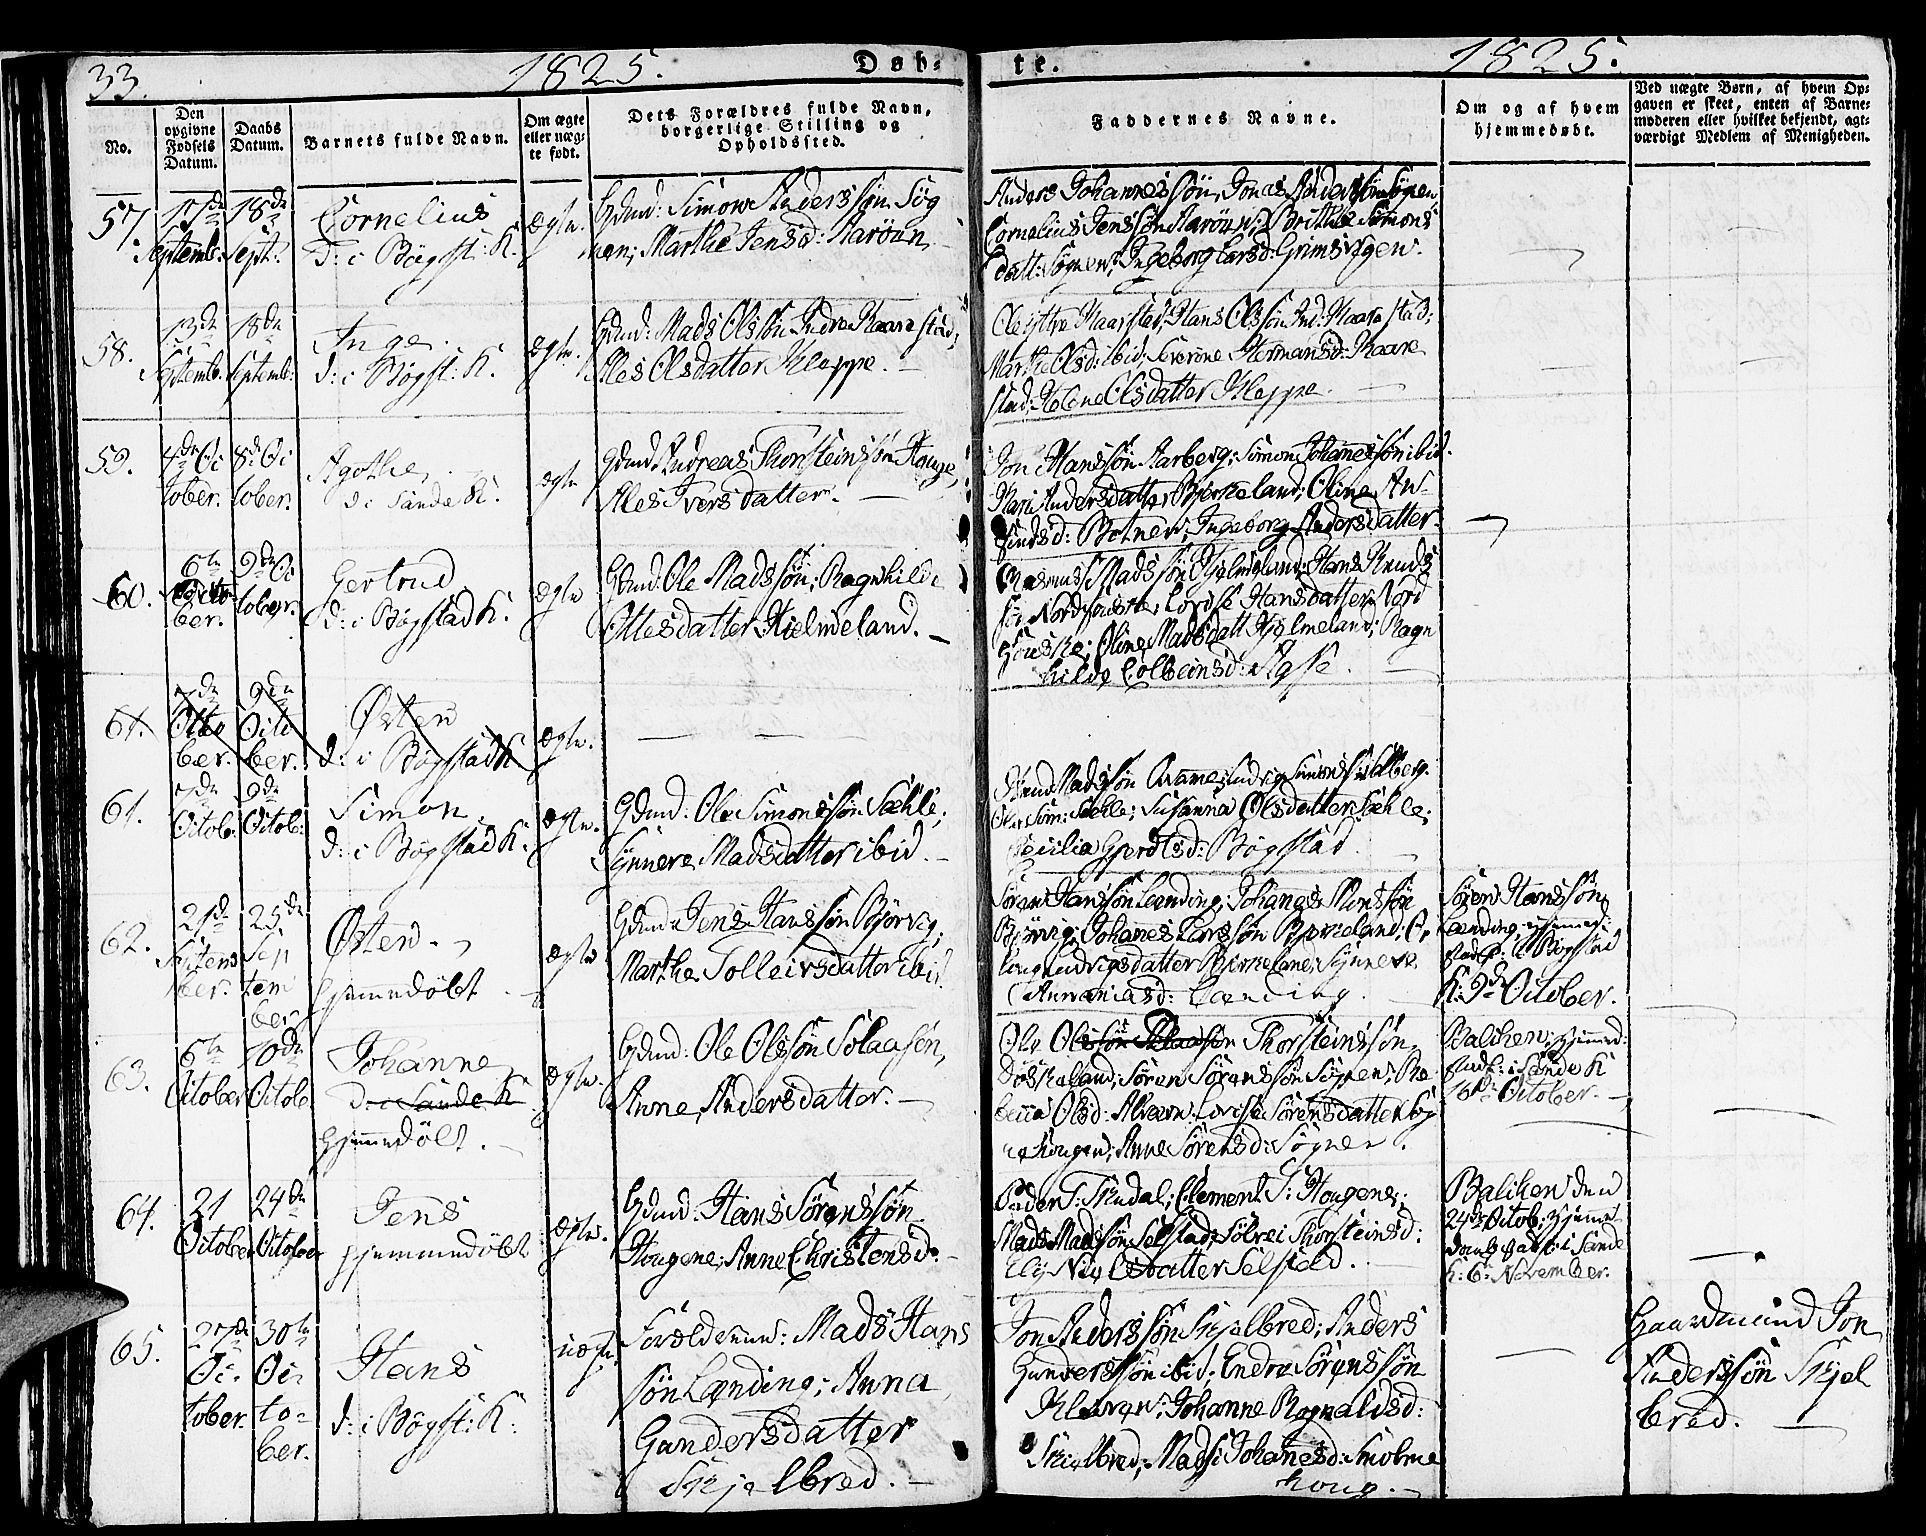 33.
1825.
Døb-
te.
1825.
No.
Den
opgivne
Fødsels
Datum.
Daabs
Datum.
Barnets fulde Navn.
Om ægte
eller uæg-
te født.
Dets Forældres fulde Navn,
borgerlige Stilling og
Opholdssted.
Faddernes Navne.
Om og af hvem
hjemmedøbt.
Ved uægte Børn, af hvem Op-
gaven er skeet, enten af Barne-
moderen eller hvilket bekjendt, agt-
værdigt Medlem af Menigheden.
57.
17de
Septemb:
18de
Sept:
Cornelius
D: i Bøgst: K.
ægte.
Gdmd: Simon Anderssøn Søg
nen; Marthe Jensd: Aarøen
Anders Johannessøn, Jonas Anderssøn Søgnen,
Cornelius Jenssøn Aarøen; Brithe Simons
datt: Søgnen; Ingeborg Larsd: Grimsvigen.
58.
13de
Septemb:
18de
Septemb:
Inge.
d: i Bøgst: K.
ægte.
Gdmd: Mads Olssøn Indre Kaarestad,
Ales Olsdatter Kleppe.
Hans Olssøn Ind: Kaarestad;
Marthe Olsd: ibid; Severine Hermansd: Kaare
stad; Helene Olsdatter Kleppe.
59.
4de Oc
tober.
8de Oc
tober.
Agothe.
d: i Sande K.
ægte
Gdmd: Andreas Thorsteinsøn Houge,
Ales Iversdatter.
Jon Hanssøn Aarberg; Simon Johannessøn ibid.
Kari Andersdatter Birkeland; Oline An-
findsd: Botnen; Ingeborg Andersdatter.
60.
6te
Octo
ber.
9de Oc
tober.
Gertrud
d: i Bøgstad K.
ægte
Gdmd: Ole Madssøn; Ragnhilde
Ottesdatter Hielmeland.
Rasmus Madssøn Hjelmeland; Hans Knuds
søn Lovise Hansdatter Nord
Oline Madsdatt Hjelmeland; Ragn
hilde Colbeinsd:
61.
7de
Octo
ber.
9de
Octo
ber.
Østen
d: i Bøgstad K
ægte.
61.
7de
Octob:
9de
Octob:
Simon.
d: i Bøgstad K.
ægte.
Gdmd: Ole Simonssøn Sæhle;
Synneve Madsdatter ibid.
Knud Madssøn Qvamme; Ludvig
Ole Sim: Sæhle; Susanna Olsdatter Sæhle;
Cecilia Gjerdtsd: Bøgstad.
62.
21de
Septem
ber.
25de
Sep
tem
ber
Østen.
hjemmedøbt
ægte
Gdmd: Jens Hanssøn Bjørvig;
Marthe Tolleivsdatter ibid.
Søren Hanssøn Lænding; Johannes Monssøn
Bjørvig; Johannes Larssøn Birkeland;
Ludvigsdatter Birkeland; Synneve
Annaniasd: Lænding.
Søren Hanssøn
Lænding; hjemmed:
stadf: i Bøgstad
K: 9de October.
63.
6te
October
10de
Octob:
Johanne
D: i Sande K
hjemmedøbt.
ægte.
Gdmd: Ole Olssøn Solaasen,
Anne Andersdatter.
Ole Olssøn Solaasen Thorsteinssøn
Døskeland; Søren Sørenssøn Søgnen; Re
becca Olsd: Lovise Sørensdatter
Anne Sørensd: Søgnen.
Balchen; hjemmed:
stadf: i Sande K
16de October.
64.
21
October
24de
October
Jens
hjemmedøbt
ægte.
Gdmd: Hans Sørenssøn
Hougene; Anne Christensd:
Peder T: Skudal; Clement T: Hougene;
Mads Madssøn Selstad; Thorsteinsd:
Nielsdatter Selstad.
Balchen den
24de Octob: hjemme
døbt; stadf: i Sande
K: 6te November.
65.
27de
Oc-
tober.
30te
Oc-
to-
ber.
Hans
d: i Bøgst: K:
uægte
Forældrene: Mads Hans
søn Lænding; Anna
Gundersdatter
Skjelbred.
Jon Anderssøn Skjelbred; Anders
Gunderssøn ibid; Endre Sørenssøn
Kleven; Johanne Rognaldsd:
Skielbred; Madsi Johannesd:
houg.
Gaardmand Jon
Anderssøn Skjel
bred.